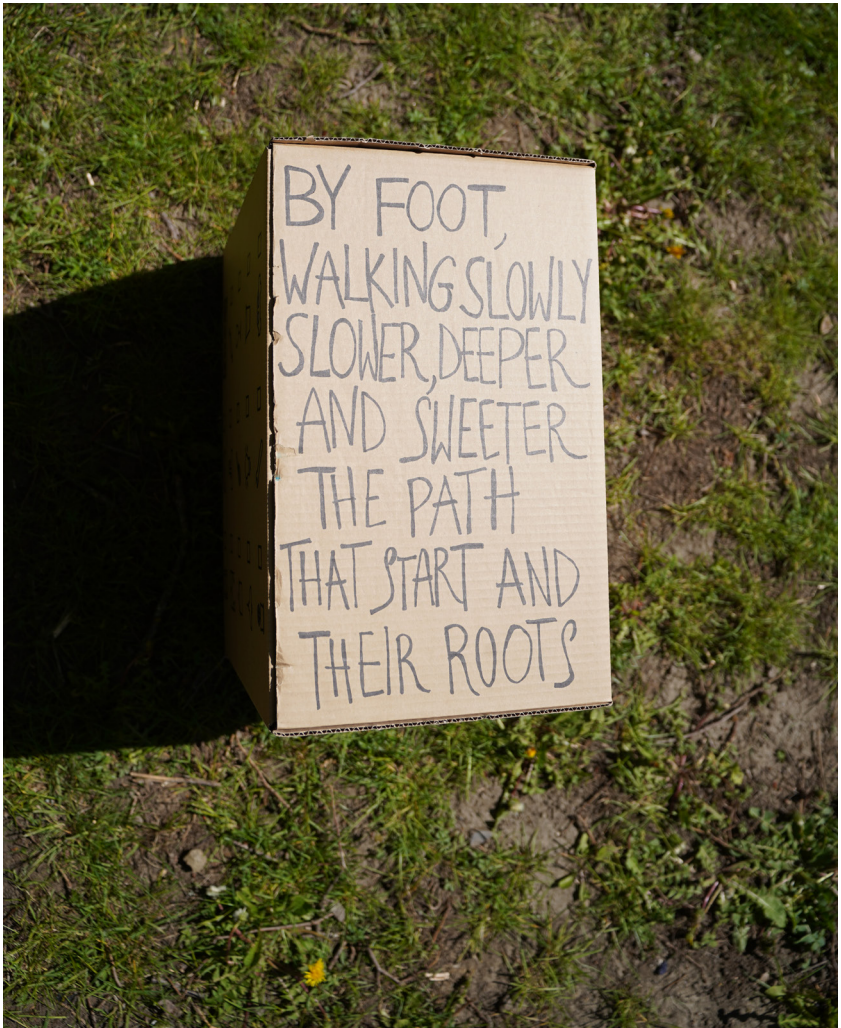 BY FOOT,
WALKING SLOWLY
SLOWER, DEEPER
AND SWEETER
THE PATH
THAT START AND
THEIR ROOTS